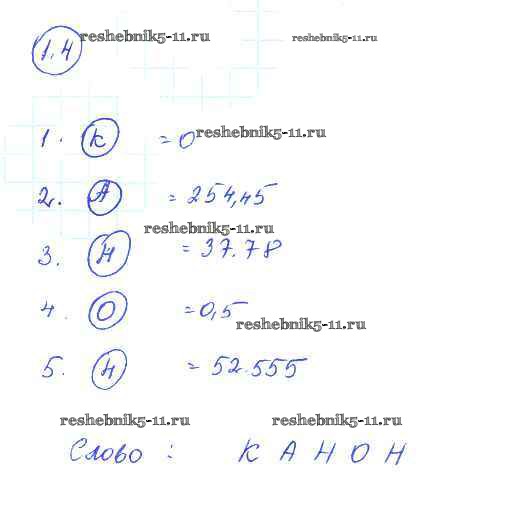 reshebnik5-11.ru reshebnik5-11.ru
1.4
1. К = 0 reshebnik5-11.ru
2. А = 254,45
reshebnik5-11.ru
3. Н = 37.78
4. О = 0,5
reshebnik5-11.ru
5. Н = 52.555
reshebnik5-11.ru reshebnik5-11.ru
Слово : К А Н О Н